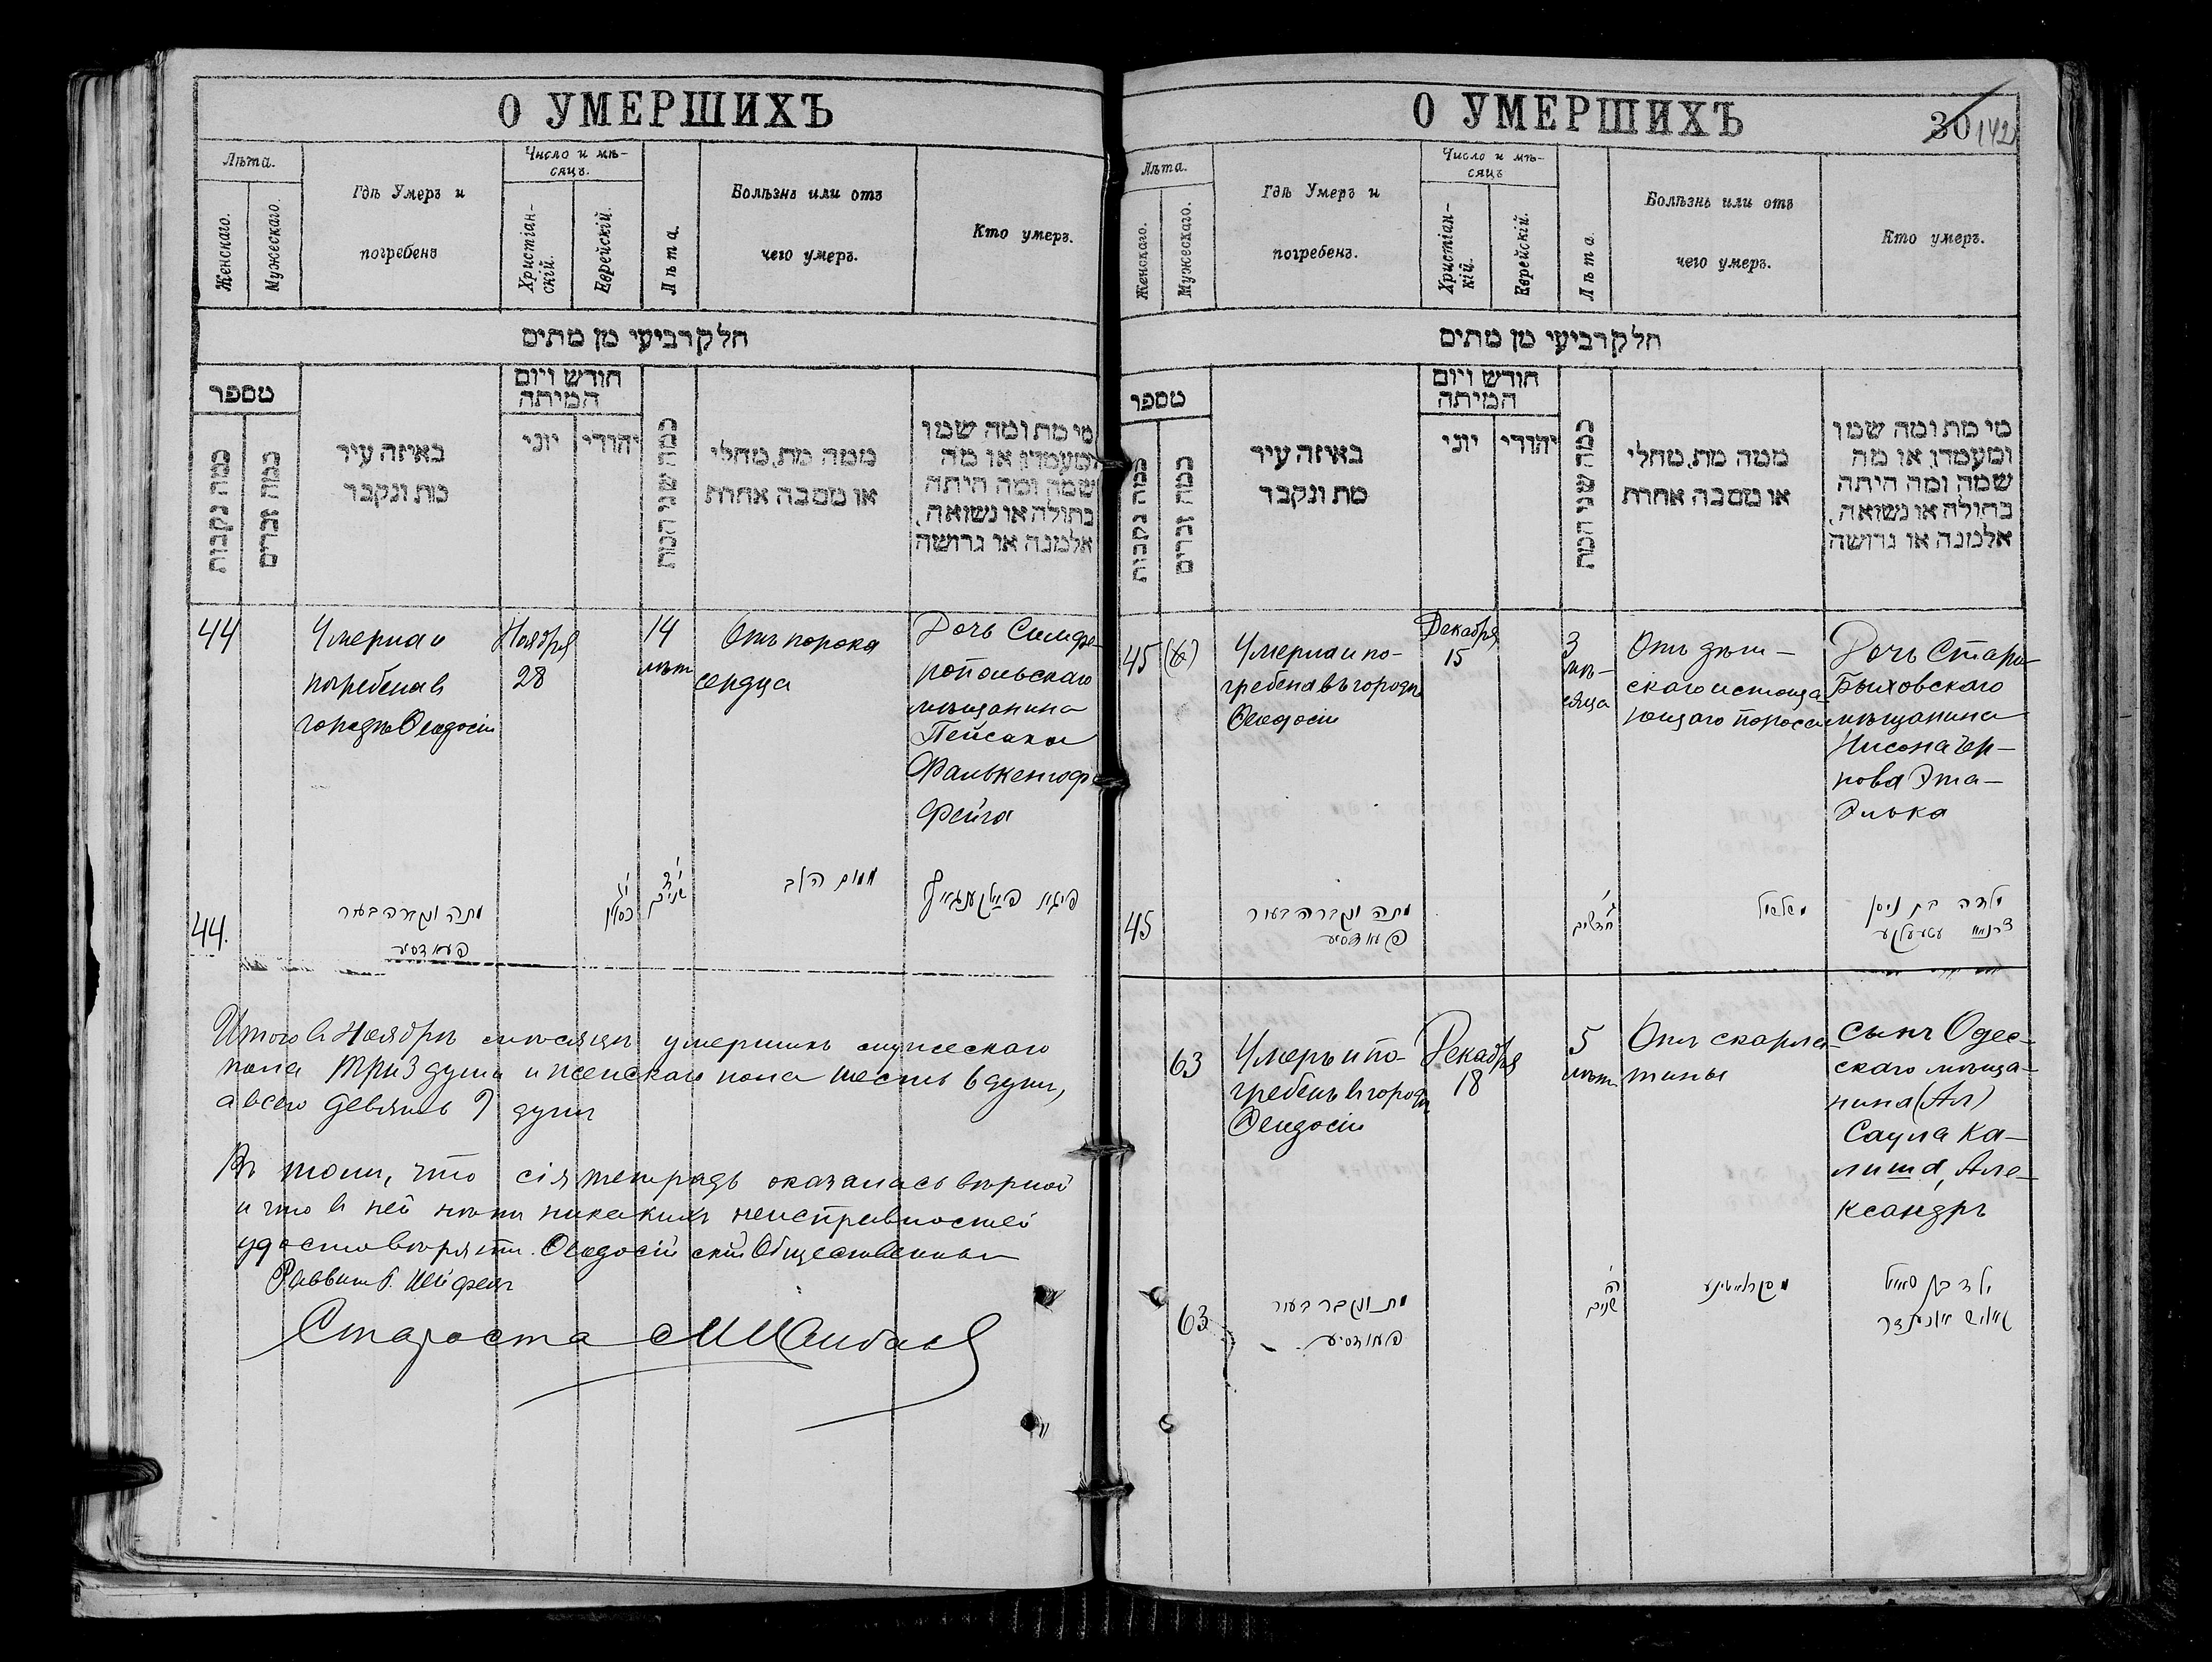 О УМЕРШИХЪ
Лѣта.
Женскаго.
Мужескаго.
Гдѣ Умеръ и
погребенъ
Число и мѣ-
сяцъ.
Христіан-
скій.
Еврейскій.
Лѣта.
Болѣзнь или отъ
чего умеръ.
Кто умеръ.
חלק רביעי מן מתים
מספר
כמה נקבות
כמה זכרים
באיזה עיר
מת ונקבר
חודש ויום
המיתה
יוני
יהודי
כמה שני המת
ממה מת, מחלי
או מסבה אחרת
מי מת ומה שמו
ומעמדו, או מה
שמה ומה היתה
בתולה או נשואה,
אלמנה או גרושה
44
Умерла и
погребена в
городѣ Ѳеодосіи
Ноября
28
14
лѣт
Отъ порока
сердца
Дочь Симфе-
ропольскаго
мѣщанина
Пейсаха
Фейга
44.
מתה ונקברה בעיר
פעאדסיע
כסלו
י״ד
שנים
מום הלב
Итого в Ноябрѣ мѣсяцѣ умершихъ мужескаго
пола три 3 души и женскаго пола шесть 6 душъ,
а всего девять 9 душъ
Въ томъ, что сія тетрадь оказалась вѣрной
и что в ней нѣтъ никакихъ неисправностей
удостовѣряетъ. Ѳеодосійскій Общественный
Раввинъ
Староста
О УМЕРШИХЪ
30 142
Лѣта.
Женскаго.
Мужескаго.
Гдѣ Умеръ и
погребенъ.
Число и мѣ-
сяцъ
Христіан-
кій.
Еврейскій.
Лѣта.
Болѣзнь или отъ
чего умеръ.
Кто умеръ.
חלק רביעי מן מתים
מספר
כמה נקבות
כמה זכרים
באיזה עיר
מת ונקבר
חודש ויום
המיתה
יוני
יהודי
כמה שני המת
ממה מת, מחלי
או מסבה אחרת
מי מת ומה שמו
ומעמדו, או מה
שמה ומה היתה
בתולה או נשואה,
אלמנה או גרושה
45
Умерла и по-
гребена въ городѣ
Ѳеодосіи
Декабря
15
3
мѣ-
сяца
Отъ дѣт-
скаго истоща-
ющаго поноса
Дочь Старо-
Быховскаго
мѣщанина
Нисона Чер-
нова Эта-
Элька
45
מתה ונקברה בעיר
פעאדסיע
ג׳
חדשים
משלשול
ילדה בת ניסן
63
Умеръ и по-
гребенъ в городѣ
Ѳеодосіи
Декабря
18
5
лѣт
Отъ скарла-
тины
Сынъ Одес-
скаго мѣща-
нина (Ал)
Саула Ка-
лиша, Але-
ксандръ
63
מת ונקבר בעיר
פעאדסיע
ה׳
שנים
ילד בן